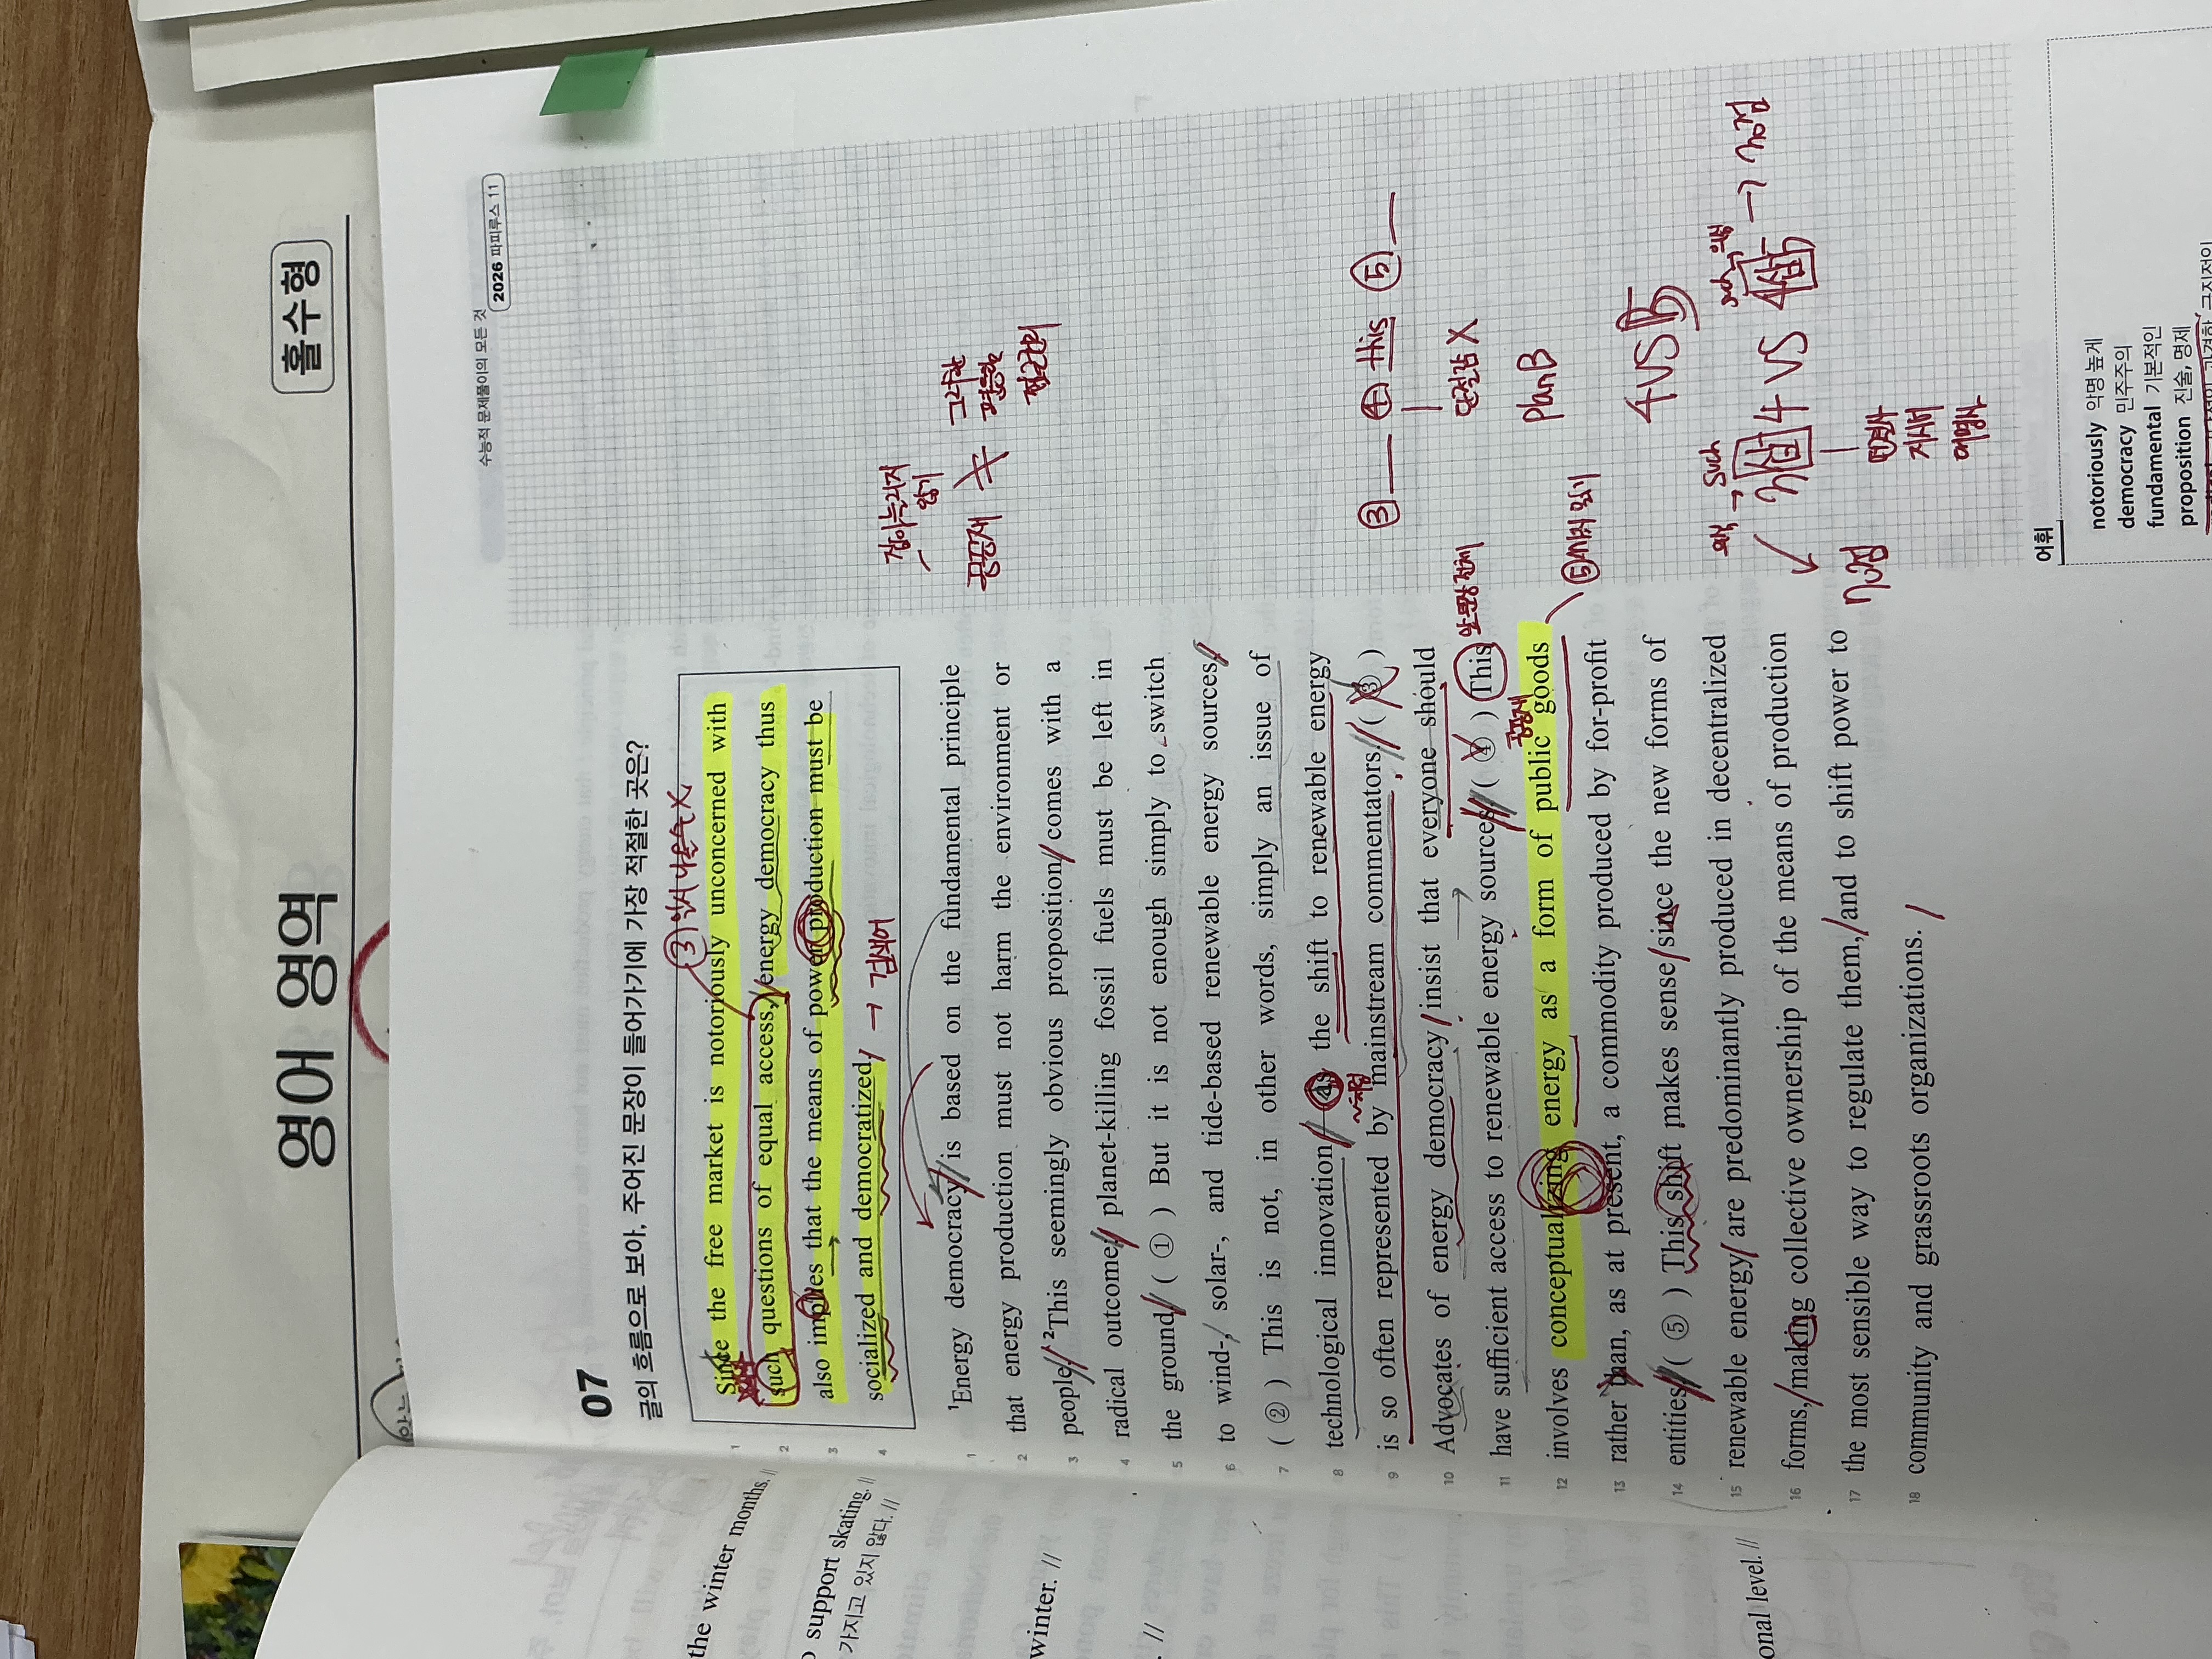 영어 영역
홀수형
수능적 문제풀이의 모든 것
2026 파피루스 11
07
글의 흐름으로 보아, 주어진 문장이 들어가기에 가장 적절한 곳은?
③앞 나올 수 X
1 Since the free market is notoriously unconcerned with
2 such questions of equal access, energy democracy thus
3 also implies that the means of power production must be
4 socialized and democratized.
→ 검색어
1 ¹Energy democracy is based on the fundamental principle
2 that energy production must not harm the environment or
3 people. ²This seemingly obvious proposition comes with a
4 radical outcome: planet-killing fossil fuels must be left in
5 the ground. ( ① ) But it is not enough simply to switch
6 to wind-, solar-, and tide-based renewable energy sources.
7 ( ② ) This is not, in other words, simply an issue of
8 technological innovation, as the shift to renewable energy
9 is so often represented by mainstream commentators. ( ③ )
10 Advocates of energy democracy insist that everyone should
11 have sufficient access to renewable energy sources. ( ④ ) This
앞문장 전체
공공재
12 involves conceptualizing energy as a form of public goods
13 rather than, as at present, a commodity produced by for-profit
14 entities. ( ⑤ ) This shift makes sense since the new forms of
15 renewable energy are predominantly produced in decentralized
16 forms, making collective ownership of the means of production
17 the most sensible way to regulate them, and to shift power to
18 community and grassroots organizations.
공공재
그러한
평등한
접근권의
③ ④ this ⑤
단절감 X
Plan B
4 VS 5
such
4 VS
지시어
어휘
notoriously 악명 높게
democracy 민주주의
fundamental 기본적인
proposition 진술, 명제
the winter months. //
support skating. //
가지고 있지 않다. //
winter. //
. //
onal level. //